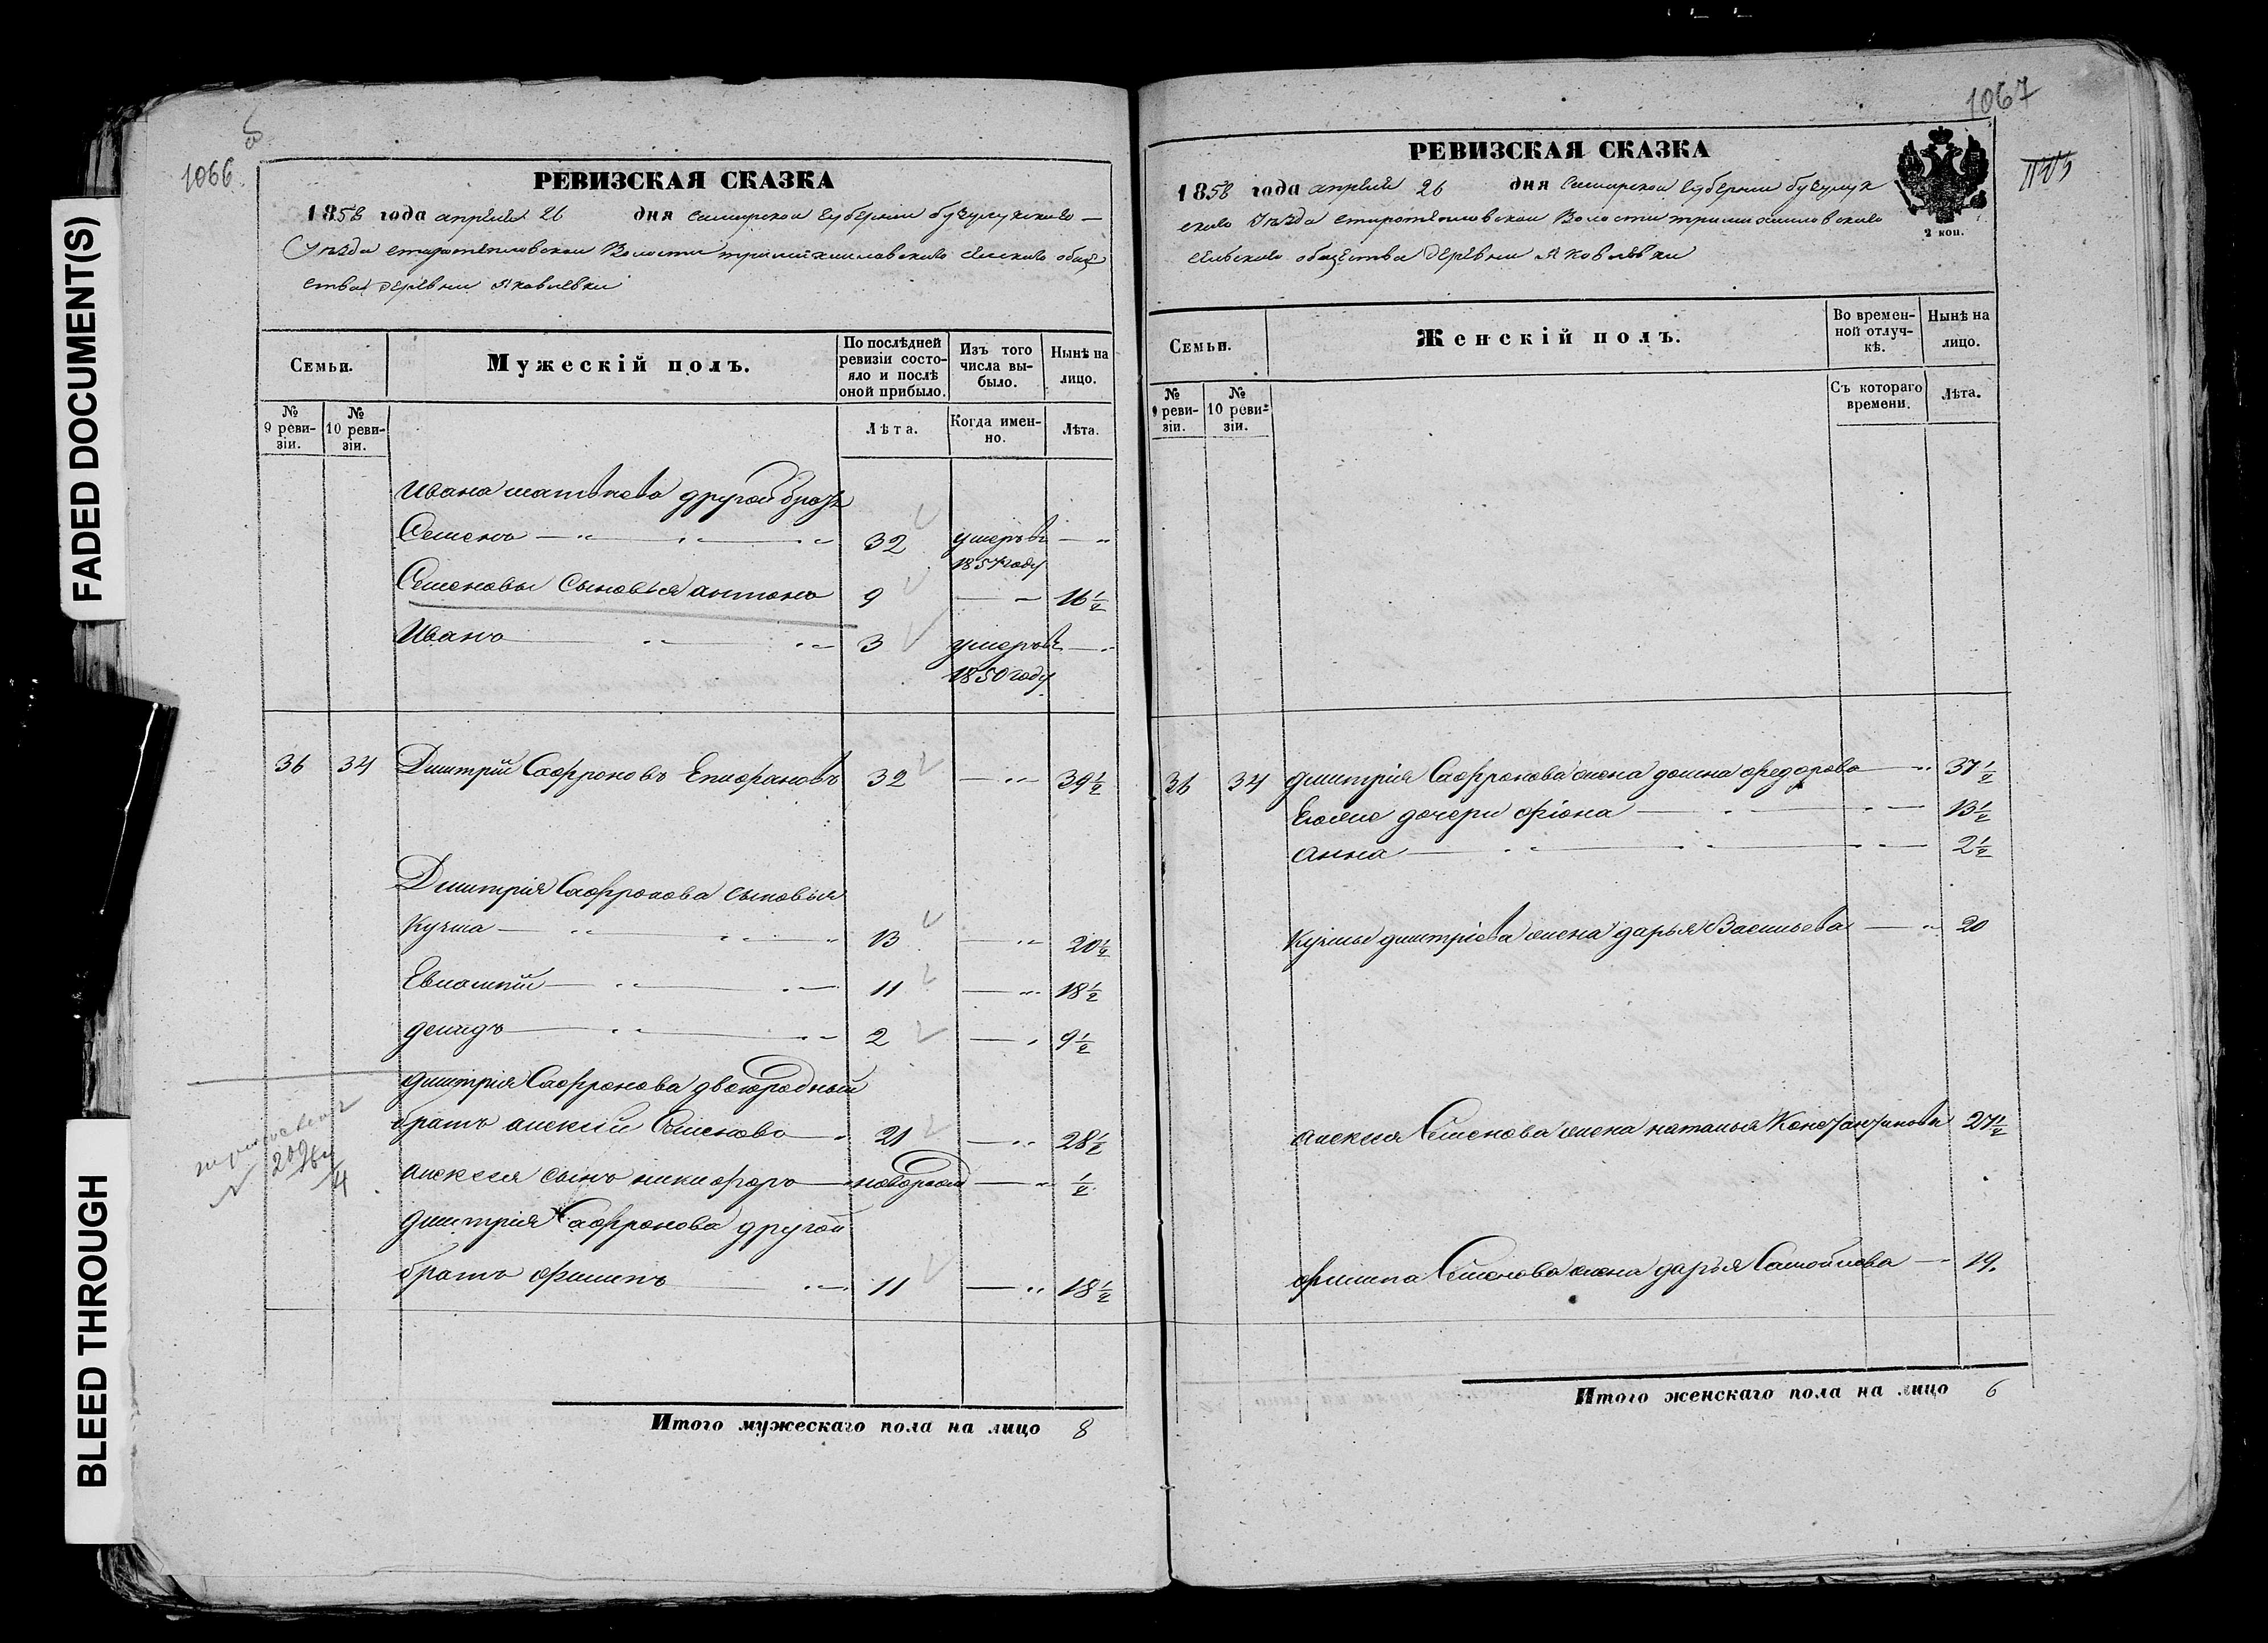 FADED DOCUMENT(S)
BLEED THROUGH
1066
РЕВИЗСКАЯ СКАЗКА
1858 года апреля 26 дня самарской губернии бузулукскаго
Уѣзда старотепловской Волости
ства деревни Яковлевки
Семьи.
Мужескій полъ.
По послѣдней ревизіи состояло и послѣ оной прибыло.
Изъ того числа выбыло.
Нынѣ на лицо.
№ 9 ревизіи.
№ 10 ревизіи.
Лѣта.
Когда именно.
Лѣта.
Ивана матвѣева другой братъ
Семенъ 32 умеръ въ
1857 году
Семеновы сыновья антонъ 9 16 1/2
Иванъ 3 умеръ въ
1850 году
36 34 Дмитрій Сафроновъ Епифановъ 32 39 1/2
Дмитрія Сафронова сыновья
Кузма 13 20 1/2
Евлампій 11 18 1/2
демидъ 2 9 1/2
дмитрія Сафронова двоюродный
братъ алексѣй Семеновъ 21 28 1/2
алексея сынъ никифоръ новорожд 1/2
дмитрія Сафронова другой
братъ филипъ 11 18 1/2
Итого мужескаго пола на лицо 8
1067
РЕВИЗСКАЯ СКАЗКА
2 коп.
1858 года апреля 26 дня Самарской губернии бузулук
скаго Уѣзда старотепловской Волости
сельскаго общества деревни Яковлевки
Семьи.
Женскій полъ.
Во временной отлучкѣ.
Нынѣ на лицо.
№ 9 ревизіи.
№ 10 ревизіи.
Съ котораго времени.
Лѣта.
36 34 дмитрія Сафронова жена домна федорова 37 1/2
Его же дочери фіона 13 1/2
анна 2 1/2
Кузмы дмитріева жена дарья Васильева 20
алексея Семенова жена наталья Константинова 27 1/2
филипа Семенова жена дарья Самойлова 19.
Итого женскаго пола на лицо 6